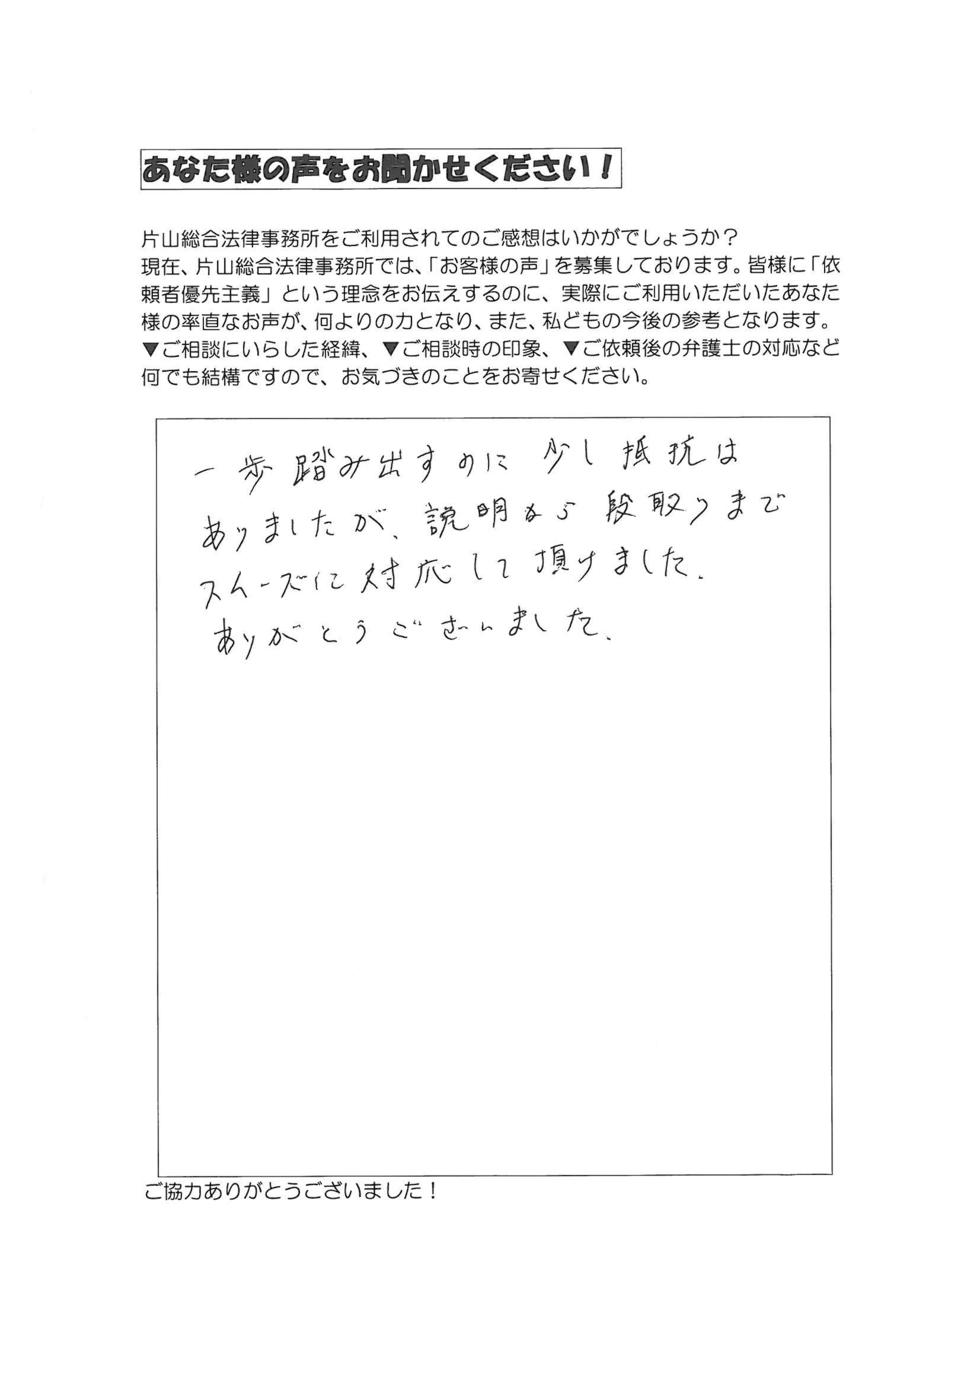 あなた様の声をお聞かせください！
片山総合法律事務所をご利用されてのご感想はいかがでしょうか？
現在、片山総合法律事務所では、「お客様の声」を募集しております。皆様に「依
頼者優先主義」という理念をお伝えするのに、実際にご利用いただいたあなた
様の率直なお声が、何よりの力となり、また、私どもの今後の参考となります。
▼ご相談にいらした経緯、▼ご相談時の印象、▼ご依頼後の弁護士の対応など
何でも結構ですので、お気づきのことをお寄せください。
一歩踏み出すのに少し抵抗は
ありましたが、説明から段取りまで
スムーズに対応して頂けました．
ありがとうございました．
ご協力ありがとうございました！